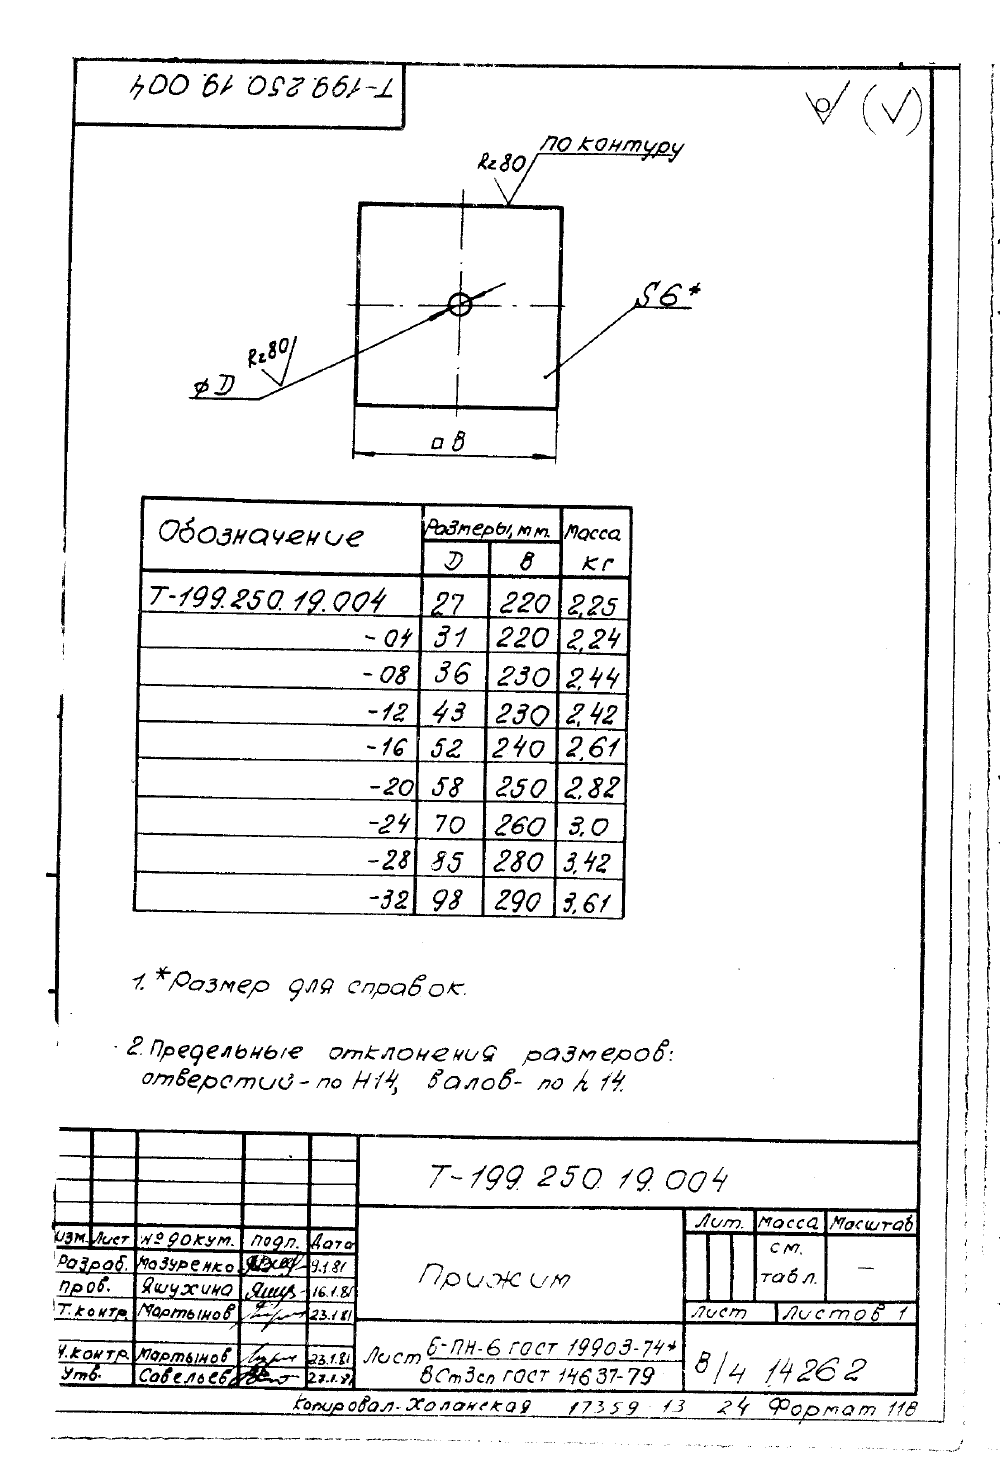 Т-199.250.19.004
Rz80
по контуру
S6*
Rz80
⌀D
□В
Обозначение
Размеры, мм.
Масса кг
D
В
Т-199.250.19.004 27 220 2,25
-04 31 220 2,24
-08 36 230 2,44
-12 43 230 2,42
-16 52 240 2,61
-20 58 250 2,82
-24 70 260 3,0
-28 85 280 3,42
-32 98 290 3,61
1. *Размер для справок.
2. Предельные отклонения размеров:
отверстий - по Н14, валов - по h 14.
Т-199.250.19.004
Изм. Лист № докум. Подп. Дата
Разраб. Мазуренко 9.1.81
Пров. Яшухина 16.1.81
Т.контр. Мартынов 23.1.81
Н.контр. Мартынов 23.1.81
Утв. Савельев
Прижим
Лит. Масса Масштаб
см. табл. —
Лист Листов 1
Лист Б-ПН-6 гост 19903-74*
ВСт3сп гост 14637-79
В/4 14262
Копировал-Холанская 17359 13 24 Формат 11В